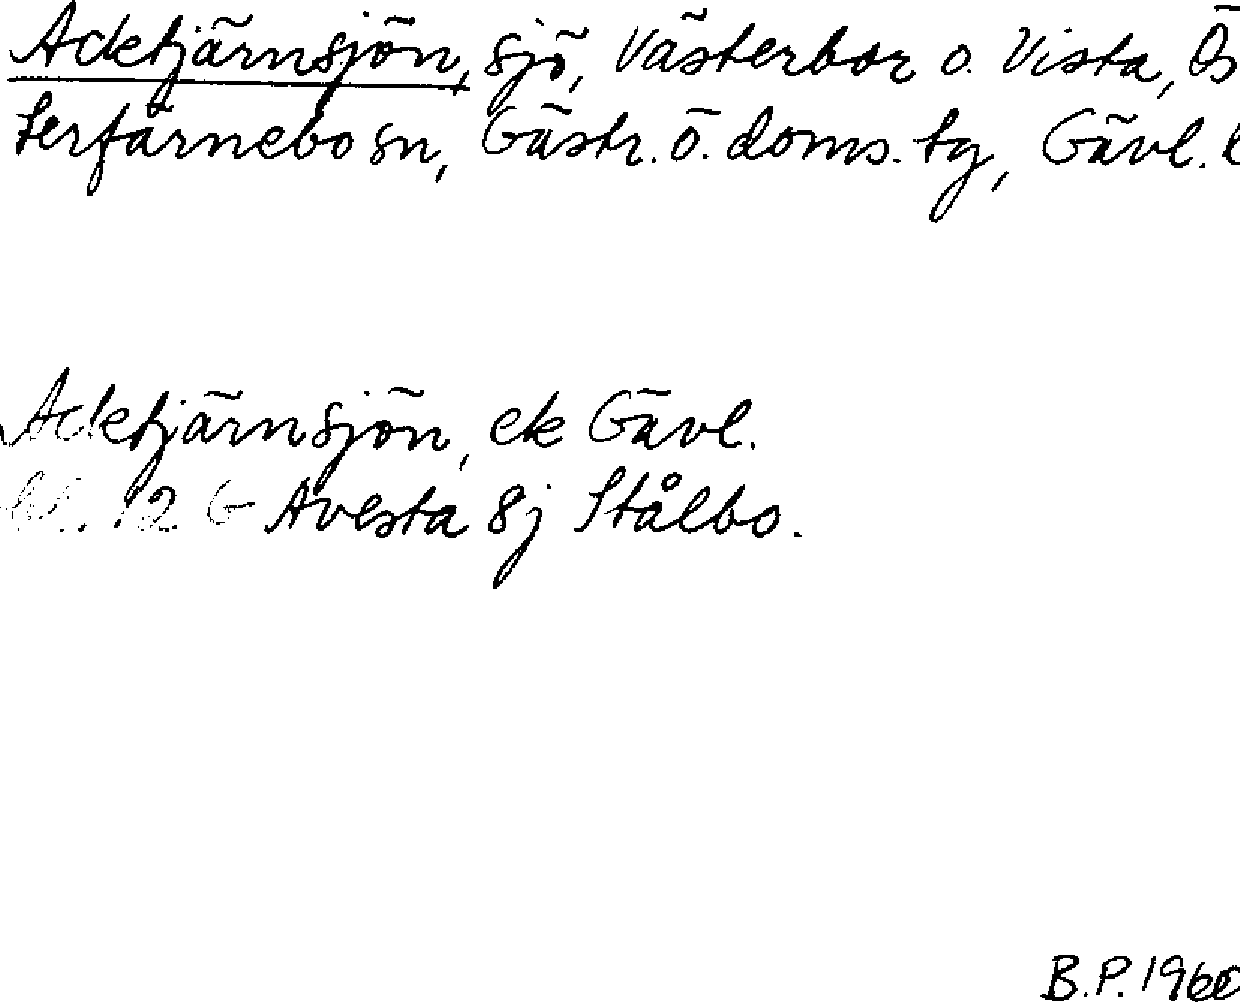 Acktjärnsjön, sjö, Västerbor o. Vista, Ös
terfärnebo sn, Gästr. ö. doms. tg, Gävl. l
Acktjärnsjön, ek Gävl.
bl. 12 G Avesta 8j Stålbo.
B.P. 196